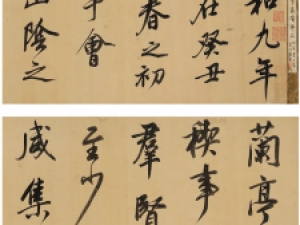 和九年
在癸丑
春之初
于會
山陰之
蘭亭
禊事
羣賢
至少
咸集